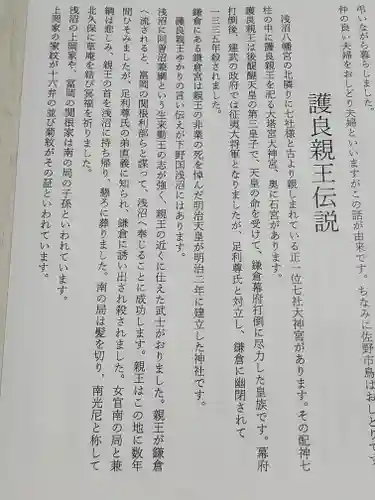 弔いながら暮らしました。
仲の良い夫婦をおしどり夫婦といいますがこの話が由来です。ちなみに佐野市鳥はおしどりです
護良親王伝説
浅沼八幡宮の北隣りに七社様と古より親しまれている正一位七社大神宮があります。その配神七
柱の中に護良親王を祀る大塔宮大神宮、奥に石宮があります。
護良親王は後醍醐天皇の第三皇子で、天皇の命を受けて、鎌倉幕府打倒に尽力した皇族です。幕府
打倒後、建武の政府では征夷大将軍となりましたが、足利尊氏と対立し、鎌倉に幽閉されて
一三三五年殺されました。
鎌倉にある鎌倉宮は親王の非業の死を悼んだ明治天皇が明治二年に建立した神社です。
護良親王ゆかりの言い伝えが下野国浅沼にはあります。
浅沼に同曽沼義綱という生来勤王の志が強く、親王の近くに仕えた武士がおりました。親王が鎌倉
へ流されると、富岡の関根利部らと謀って、浅沼へ奉じることに成功します。親王はこの地に数年
間ひそみましたが、足利尊氏の弟直義に知られ、鎌倉に誘い出され殺されました。女官南の局と兼
綱は悲しみ、親王の首を浅沼に持ち帰り、懇ろに葬りました。南の局は髪を切り、南光尼と称して
北久保に草庵を結び冥福を祈りました。
浅沼の上岡家、富岡の関根家は南の局の子孫といわれています。
上岡家の家紋が十六弁の並び菊紋がその証といわれています。